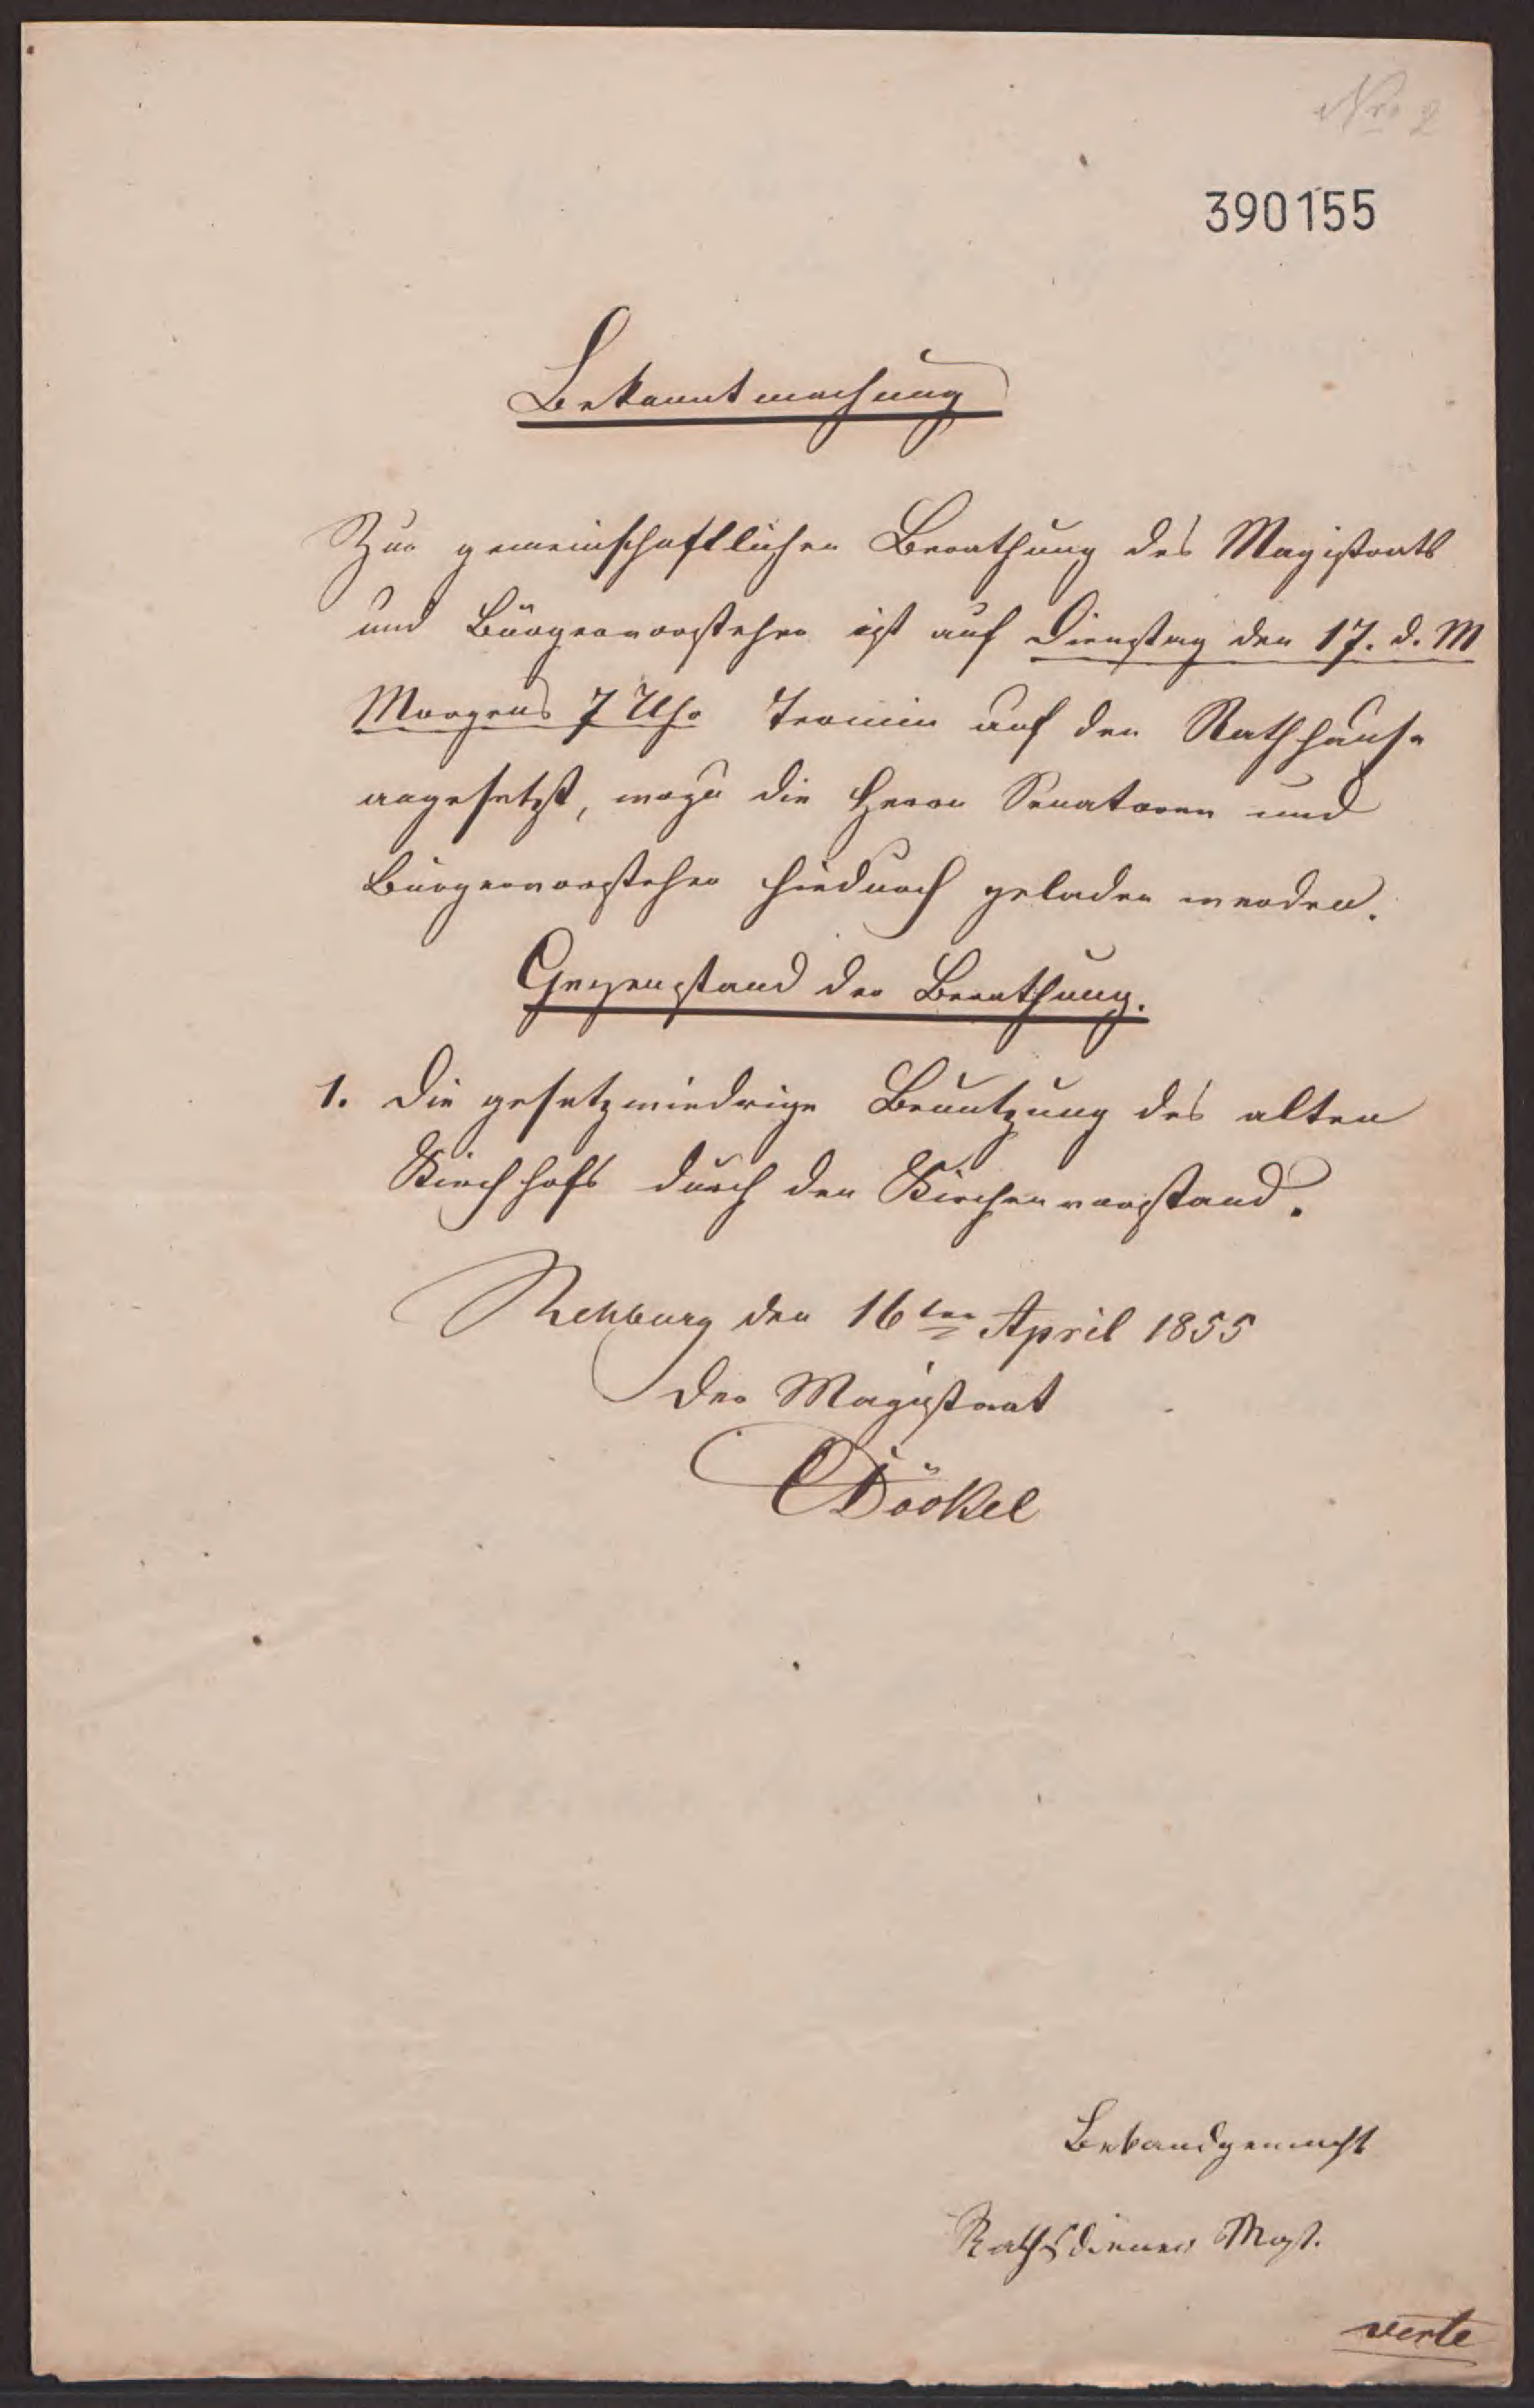 Nro 2
390155
Bekanntmachung
Zur gemeinschaftlichen Berathung des Magistrats
und Bürgervorsteher ist auf Dienstag den 17. d. M
Morgens 7 Uhr Termin auf den Rathhause
angesetzt, wozu die Herrn Senatoren und
Bürgervorsteher hiedurch geladen werden.
Gegenstand der Berathung.
1. Die gesetzwiedrige Benutzung des alten
Kirchhofs durch den Kirchenvorstand.
Rehburg den 16ten April 1855
Der Magistrat
Döokel
Bekandgemacht
Rathsdiener Mest.
verte